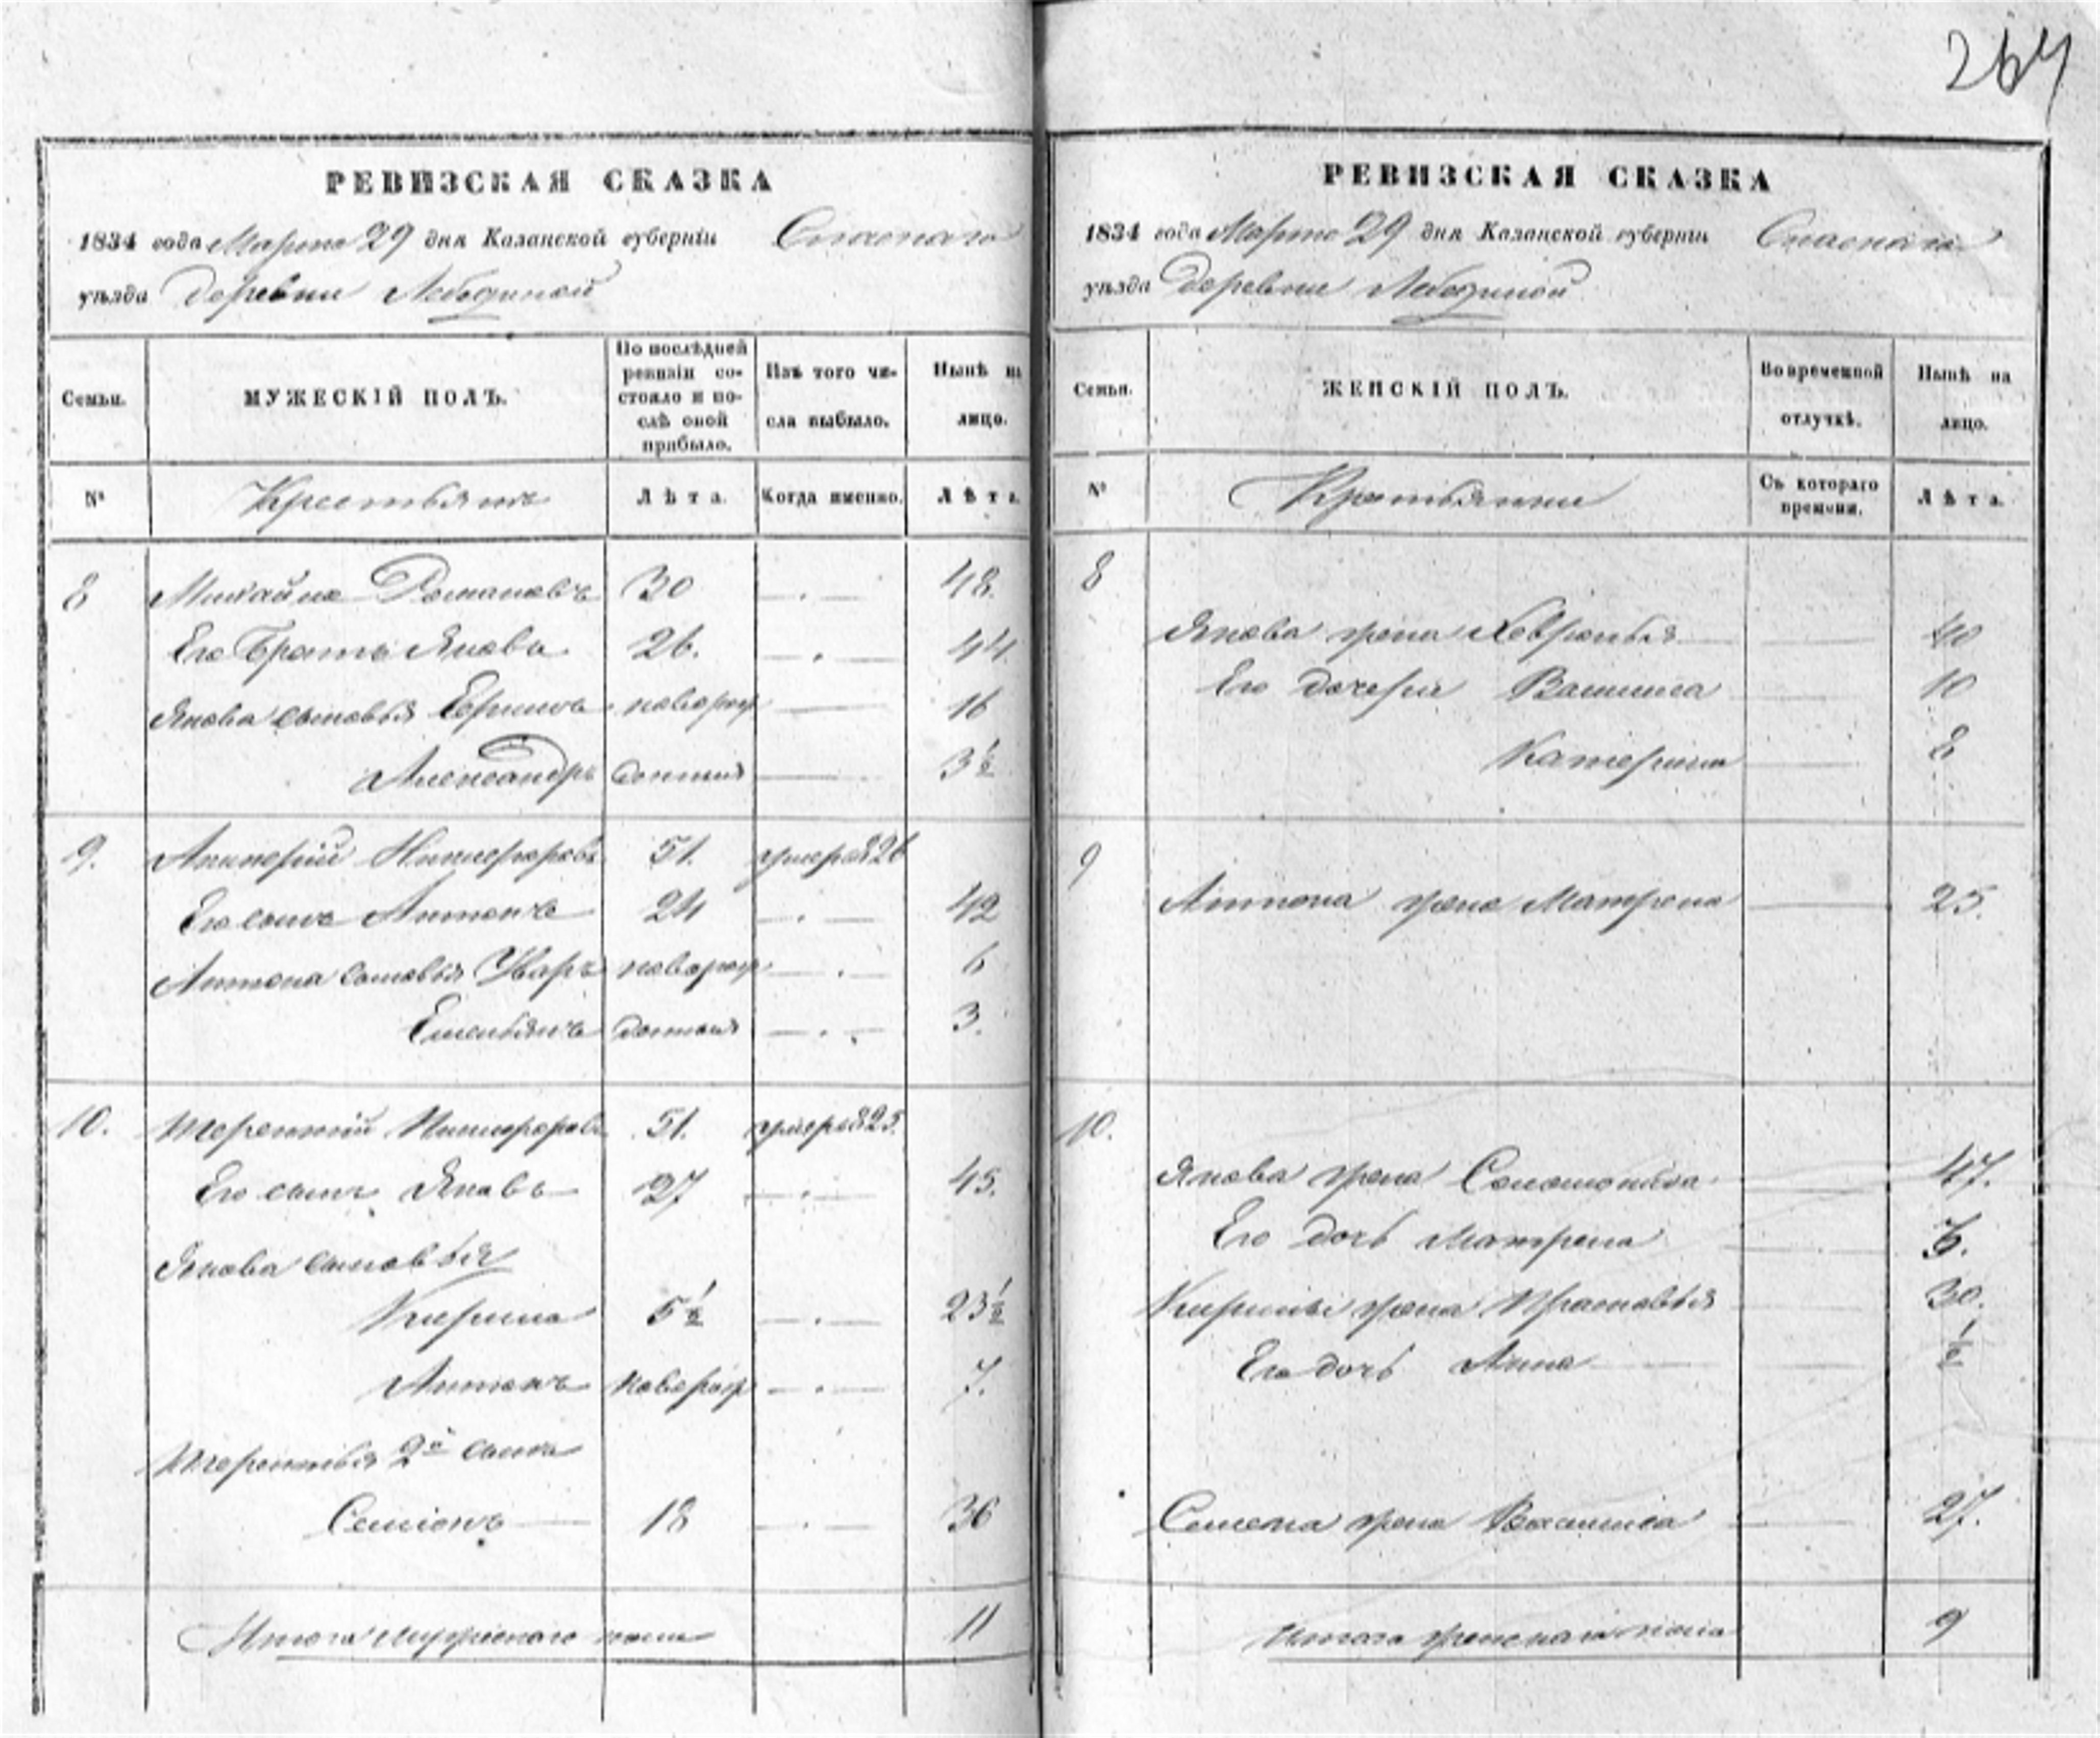 264
РЕВИЗСКАЯ СКАЗКА
1834 года Марта 29 дня Казанской губерніи Спаскаго
уѣзда деревни Лебединой
Семьи.
МУЖЕСКІЙ ПОЛЪ.
По послѣдней
ревизіи со-
стояло и по-
слѣ оной
прибыло.
Изъ того чи-
сла выбыло.
Нынѣ на
лицо.
№
Крестьянъ
Лѣта.
Когда именно.
Лѣта.
8 Михайла Романовъ 30 48.
Его братъ Яковъ 26. 44
Якова сыновья Ефимъ новорож 16
Александръ 3½
9. Никифоровъ 51. умеръ 826
Его сынъ Антонъ 24 42
Антона сыновья Уваръ новорож 6
Емельянъ 3.
10. Терентий Никифоровъ 51. умеръ 825.
Его сынъ Яковъ 27 45.
Якова сыновья
Кирила 5½ 23½
Антонъ новорож 7.
Терентья 2й сынъ
Семіонъ 18 36
Итого мужескаго пола 11
РЕВИЗСКАЯ СКАЗКА
1834 года Марта 29 дня Казанской губерніи Спаскаго
уѣзда деревни Лебединой
Семьи.
ЖЕНСКІЙ ПОЛЪ.
Во временной
отлучкѣ.
Нынѣ на
лицо.
№
Крестьянки
Съ котораго
времени.
Лѣта.
8
Якова жена Хавронья 40
Его дочери Василиса 10
Катерина 8
9
Антона жена Матрена 25.
10.
Якова жена Соломонида 47.
Его дочь Матрена
Кирилы жена Прасковья 30.
Его дочь Анна ½
Семена жена Василиса 27.
Итого женскаго пола 9